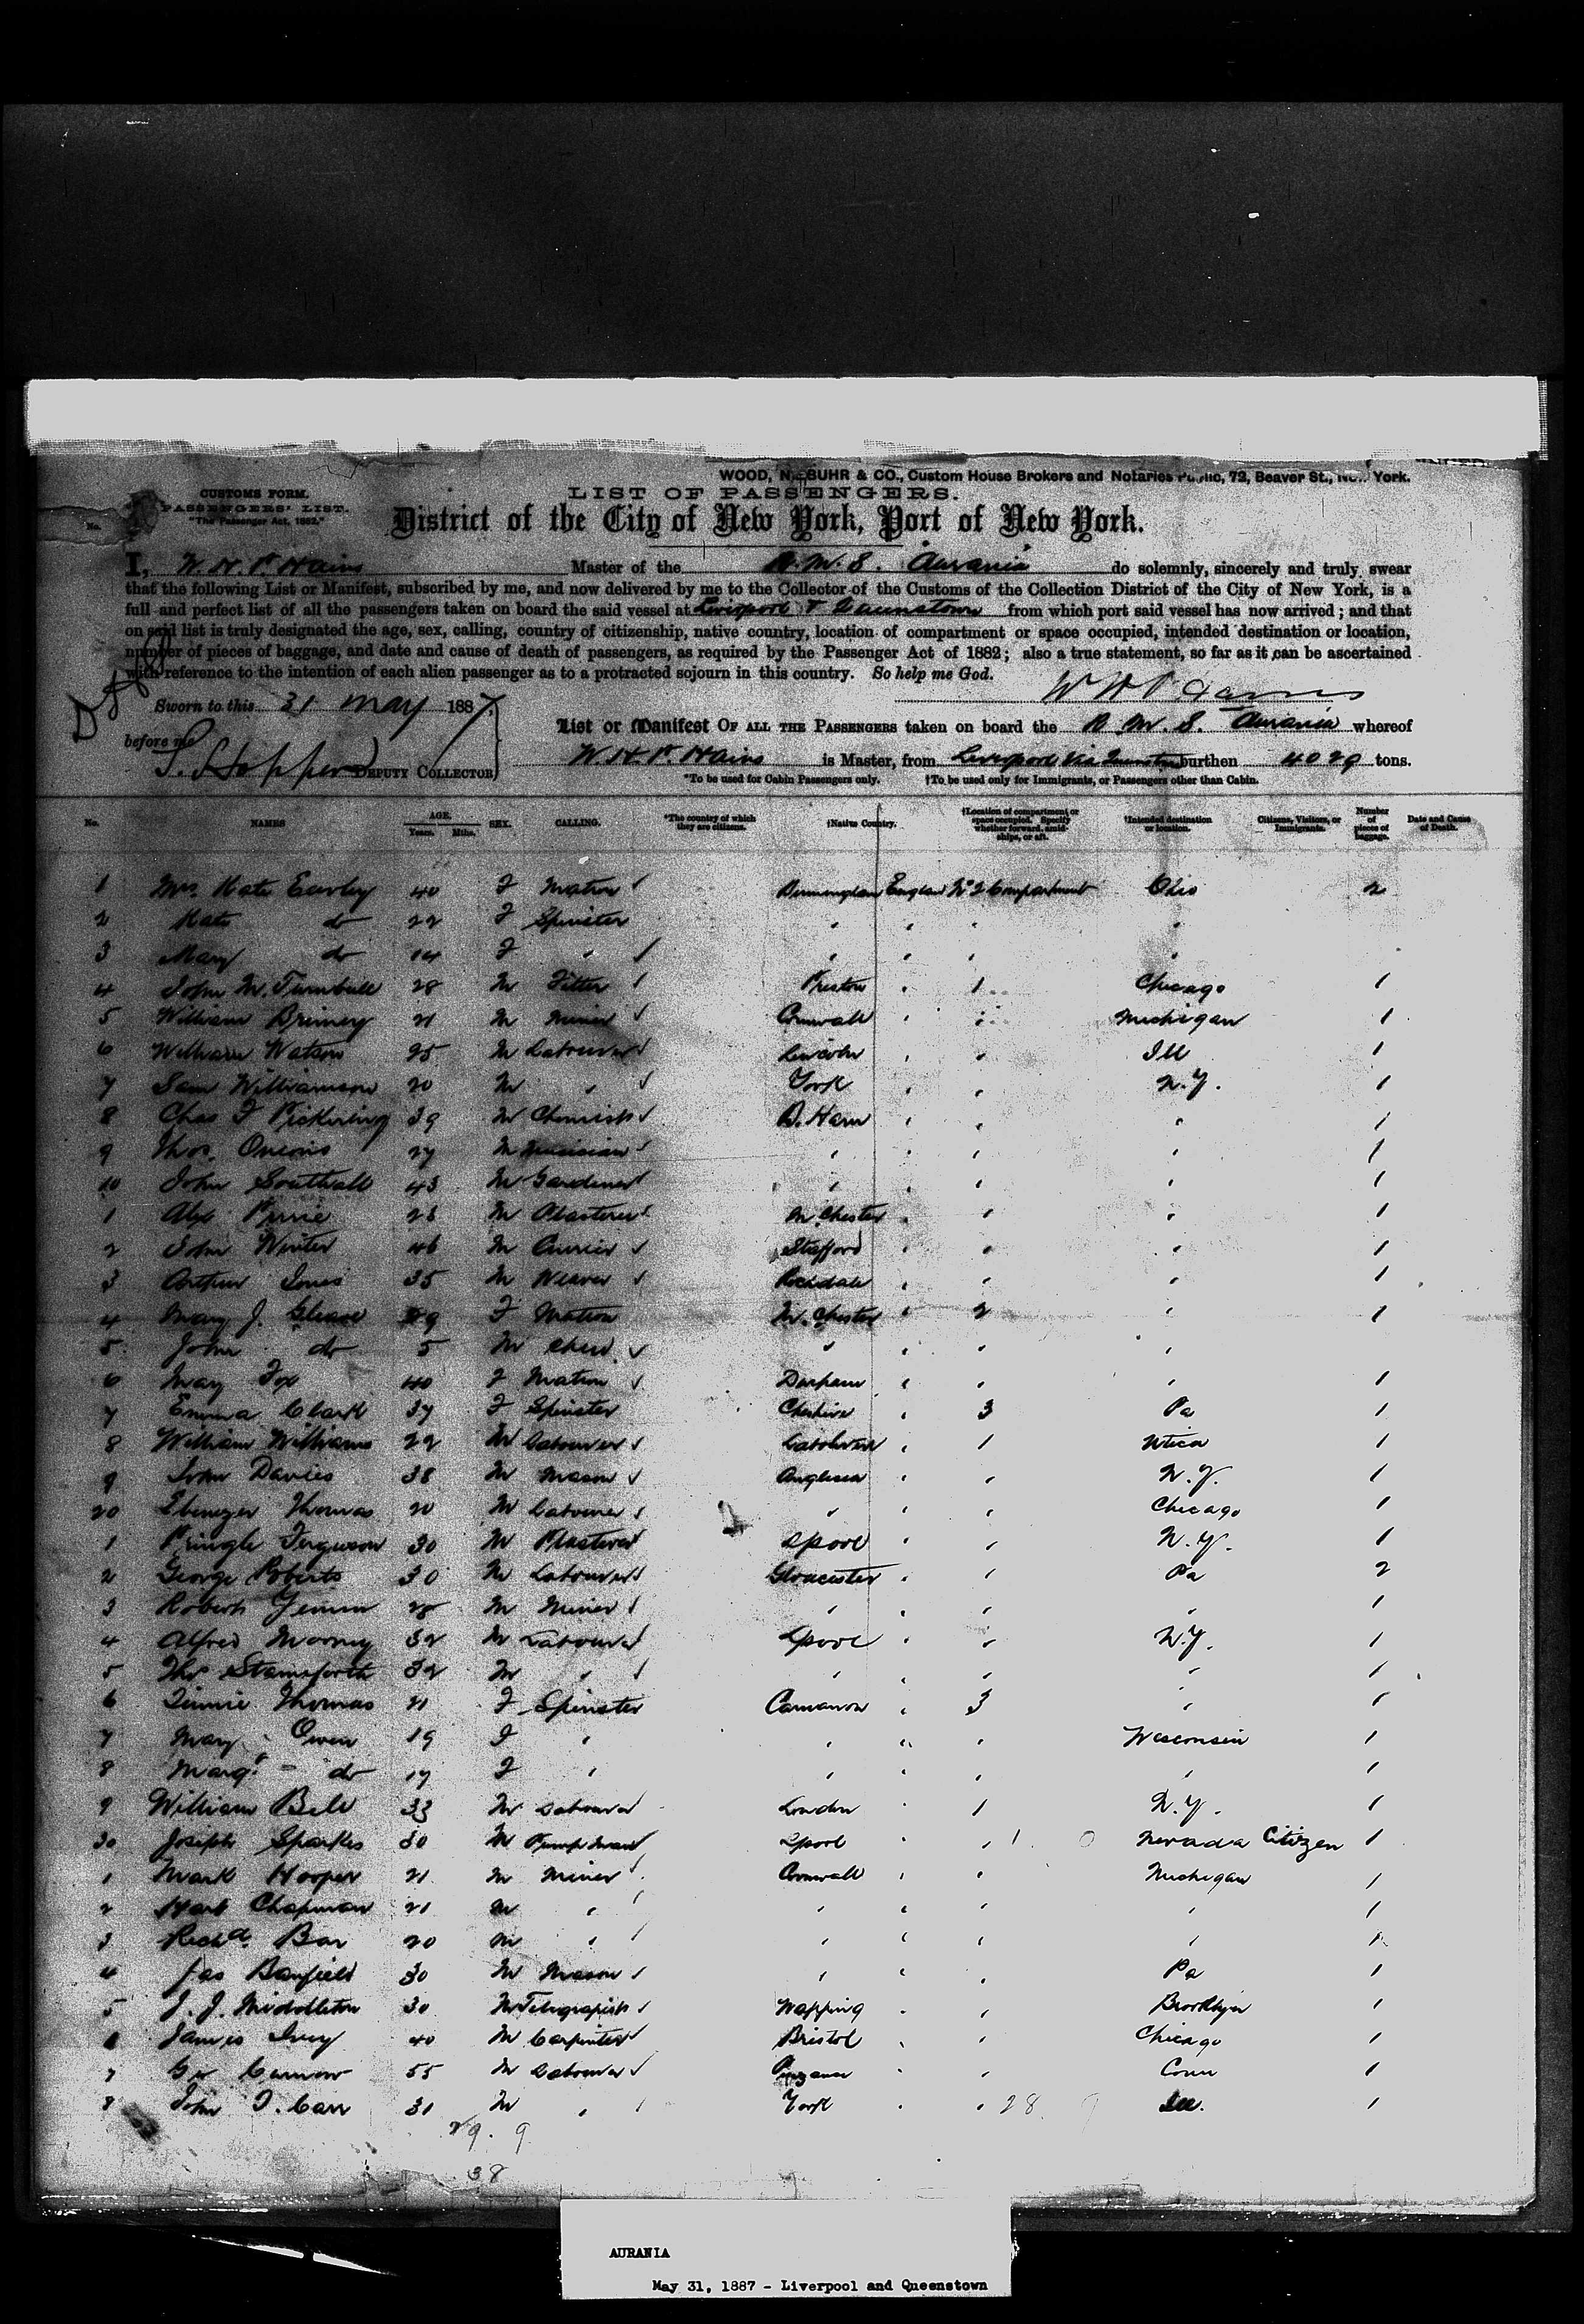 WOOD, NIEBUHR & CO., Custom House Brokers and Notaries Public, 72, Beaver St., New York.
CUSTOMS FORM.
PASSENGERS' LIST.
"The Passenger Act, 1882."
LIST OF PASSENGERS.
District of the City of New York, Port of New York.
I, W. H. P. Hains Master of the R. M. S. Aurania do solemnly, sincerely and truly swear
that the following List or Manifest, subscribed by me, and now delivered by me to the Collector of the Customs of the Collection District of the City of New York, is a
full and perfect list of all the passengers taken on board the said vessel at Liverpool & Queenstown from which port said vessel has now arrived; and that
on said list is truly designated the age, sex, calling, country of citizenship, native country, location of compartment or space occupied, intended destination or location,
number of pieces of baggage, and date and cause of death of passengers, as required by the Passenger Act of 1882; also a true statement, so far as it can be ascertained
with reference to the intention of each alien passenger as to a protracted sojourn in this country. So help me God.
W H P Hains
Sworn to this 31 May 1887,
before me
List or Manifest OF ALL THE PASSENGERS taken on board the R. M. S. Aurania whereof
S. Hopper DEPUTY COLLECTOR
W. H. P. Hains is Master, from Liverpool via Queenstown burthen 4029 tons.
*To be used for Cabin Passengers only. †To be used only for Immigrants, or Passengers other than Cabin.
No. NAMES AGE. Years. Mths. SEX. CALLING. *The country of which they are citizens. †Native Country. †Location of compartment or space occupied. Specify whether forward, amidships, or aft. †Intended destination or location. Citizens, Visitors, or Immigrants. Number of pieces of baggage. Date and Cause of Death.
1 Mrs Kate Earley 40 F Matron Birmingham England No 2 Compartment Ohio 2
2 Kate do 22 F Spinster " " " "
3 Mary do 14 F " " " " "
4 John M. Turnbull 28 M Fitter Preston " 1 Chicago 1
5 William Brimey 21 M Miner Cornwall " " Michigan 1
6 William Watson 25 M Labourer Lincoln " " Ill 1
7 Sam Williamson 20 M " York " " N.Y. 1
8 Chas F Pickering 39 M Chemist B. Ham " " " 1
9 Thos. Onions 27 M Musician " " " 1
10 John Southall 43 M Gardener " " " " 1
1 Alex Pirrie 28 M Plasterer M.Chester " " " 1
2 John Winter 46 M Currier Stafford " " " 1
3 Arthur Jones 35 M Weaver Rochdale " " " 1
4 Mary J. Gleave 29 F Matron M.Chester " 2 " 1
5 John do 5 M Child " " " "
6 Mary Fox 40 F Matron Durham " " " 1
7 Emma Clark 37 F Spinster Cheshire " 3 Pa 1
8 William Williams 22 M Labourer " 1 Utica 1
9 John Davies 38 M Mason Anglesea " " N.Y. 1
20 Ebenezer Thomas 20 M Labourer " " " Chicago 1
1 Pringle Ferguson 30 M Plasterer Lpool " " N.Y. 1
2 George Roberts 30 M Labourer Gloucester " " Pa 2
3 Robert M Miner " " " " 1
4 Alfred Morney 32 M Labourer Lpool " " N.Y. 1
5 Thos Stainsforth 32 M " " " " 1
6 Linnie Thomas 21 F Spinster Carnarvon " 3 " 1
7 Mary Owen 19 F " " " " Wisconsin 1
8 Margt do 17 F " " " " " 1
9 William Bell 33 M Labourer London " 1 N.Y. 1
30 Joseph Sparkes 30 M Pumpman Lpool " " 1. 0 Nevada Citizen 1
1 Mark Hooper 21 M Miner Cornwall " " Michigan 1
2 Chapman 21 M " " " " 1
3 Richd. Bar 20 M " " " " " 1
4 Jas Banfield 30 M Mason " " " Pa 1
5 J. J. Middleton 30 M Telegraphist Wapping " " Brooklyn 1
6 James Ivey 40 M Carpenter Bristol " " Chicago 1
7 Geo 55 M Labourer Penzance " " Conn 1
8 John T. Carr 31 M " York " " 28. 9 Ill. 1
29. 9
38
AURANIA
May 31, 1887 - Liverpool and Queenstown